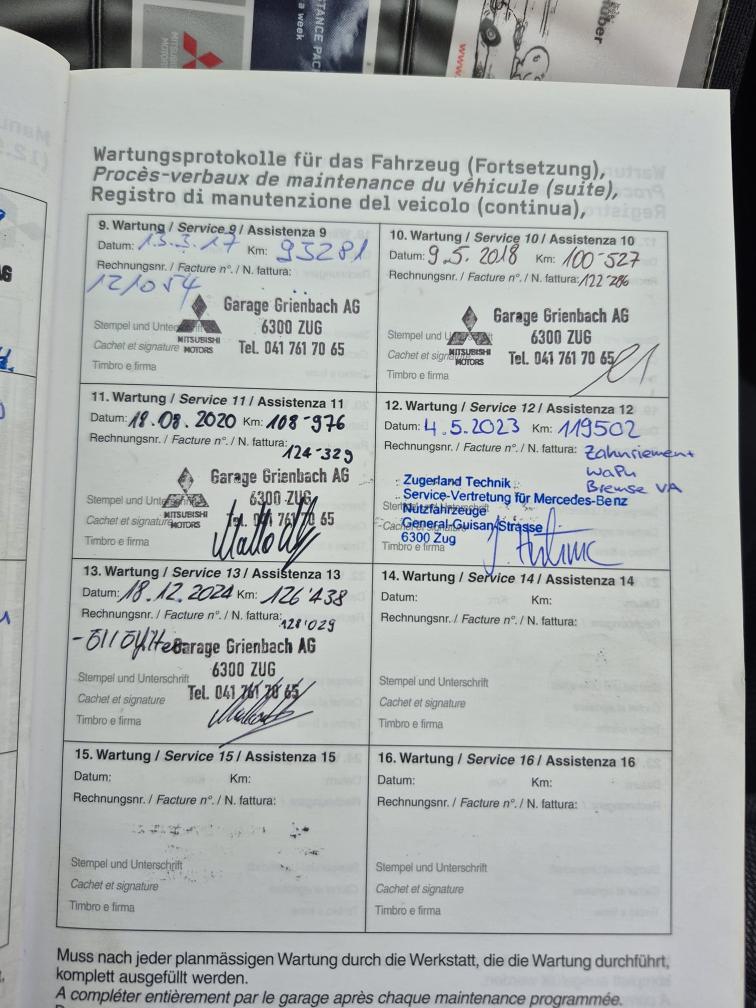 MITSUBISHI
MOTORS
STANCE PAC
a week
www.
ber
Wartungsprotokolle für das Fahrzeug (Fortsetzung),
Procès-verbaux de maintenance du véhicule (suite),
Registro di manutenzione del veicolo (continua),
9. Wartung / Service 9 / Assistenza 9
Datum: 13.3.17 Km: 93281
Rechnungsnr. / Facture n°. / N. fattura:
121054
Garage Grienbach AG
6300 ZUG
Tel. 041 761 70 65
MITSUBISHI
MOTORS
Stempel und Unte
Cachet et signature
Timbro e firma
10. Wartung / Service 10 / Assistenza 10
Datum: 9.5.2018 Km: 100-527
Rechnungsnr. / Facture n°. / N. fattura: 122-286
Garage Grienbach AG
6300 ZUG
Tel. 041 761 70 65
MITSUBISHI
MOTORS
Stempel und U
Cachet et sign
Timbro e firma
11. Wartung / Service 11 / Assistenza 11
Datum: 18.08.2020 Km: 108-976
Rechnungsnr. / Facture n°. / N. fattura:
124-329
Garage Grienbach AG
6300 ZUG
Tel. 041 761 70 65
MITSUBISHI
MOTORS
Stempel und Unte
Cachet et signature
Timbro e firma
12. Wartung / Service 12 / Assistenza 12
Datum: 4.5.2023 Km: 119502
Rechnungsnr. / Facture n°. / N. fattura: Zahnriemen+
WaPu
Bremse VA
Zugerland Technik
Service-Vertretung für Mercedes-Benz
Nutzfahrzeuge
General-Guisan-Strasse
6300 Zug
Timbro e firma
13. Wartung / Service 13 / Assistenza 13
Datum: 18.12.2024 Km: 126'438
Rechnungsnr. / Facture n°. / N. fattura:
128'029
Garage Grienbach AG
6300 ZUG
Tel. 041 761 70 65
Stempel und Unterschrift
Cachet et signature
Timbro e firma
14. Wartung / Service 14 / Assistenza 14
Datum: Km:
Rechnungsnr. / Facture n°. / N. fattura:
Stempel und Unterschrift
Cachet et signature
Timbro e firma
15. Wartung / Service 15 / Assistenza 15
Datum: Km:
Rechnungsnr. / Facture n°. / N. fattura:
Stempel und Unterschrift
Cachet et signature
Timbro e firma
16. Wartung / Service 16 / Assistenza 16
Datum: Km:
Rechnungsnr. / Facture n°. / N. fattura:
Stempel und Unterschrift
Cachet et signature
Timbro e firma
Muss nach jeder planmässigen Wartung durch die Werkstatt, die die Wartung durchführt,
komplett ausgefüllt werden.
A compléter entièrement par le garage après chaque maintenance programmée.